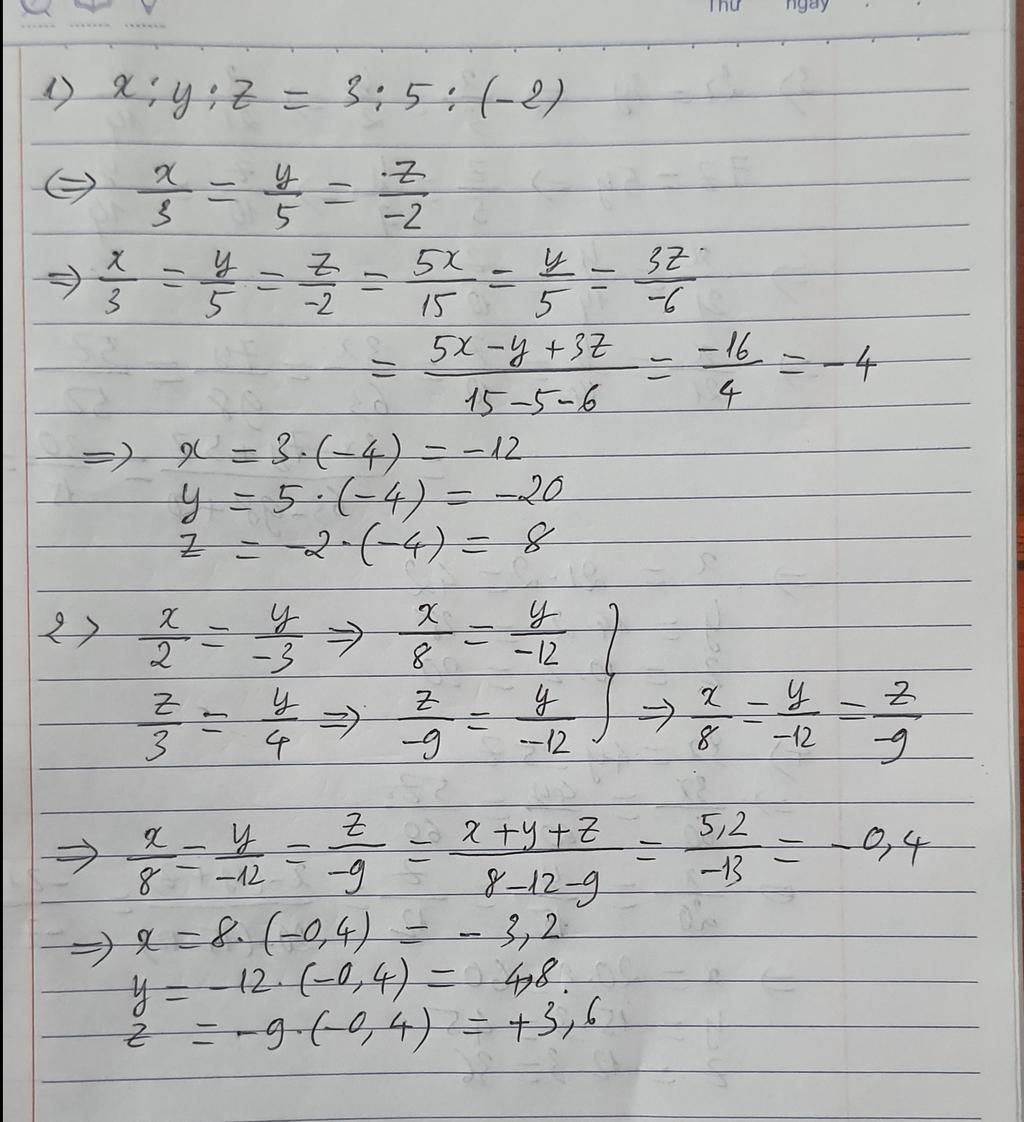 Thứ ngày
1) x : y : z = 3 : 5 : (-2)
(=) x/3 = y/5 = z/-2
=> x/3 = y/5 = z/-2 = 5x/15 = y/5 = 3z/-6
= (5x - y + 3z)/(15 - 5 - 6) = -16/4 = -4
=> x = 3 · (-4) = -12
y = 5 · (-4) = -20
z = -2 · (-4) = 8
2) x/2 = y/-3 => x/8 = y/-12
z/3 = y/4 => z/-9 = y/-12 } => x/8 = y/-12 = z/-9
=> x/8 = y/-12 = z/-9 = (x + y + z)/(8 - 12 - 9) = 5,2/-13 = -0,4
=> x = 8 · (-0,4) = -3,2
y = -12 · (-0,4) = 4,8.
z = -9 · (-0,4) = +3,6